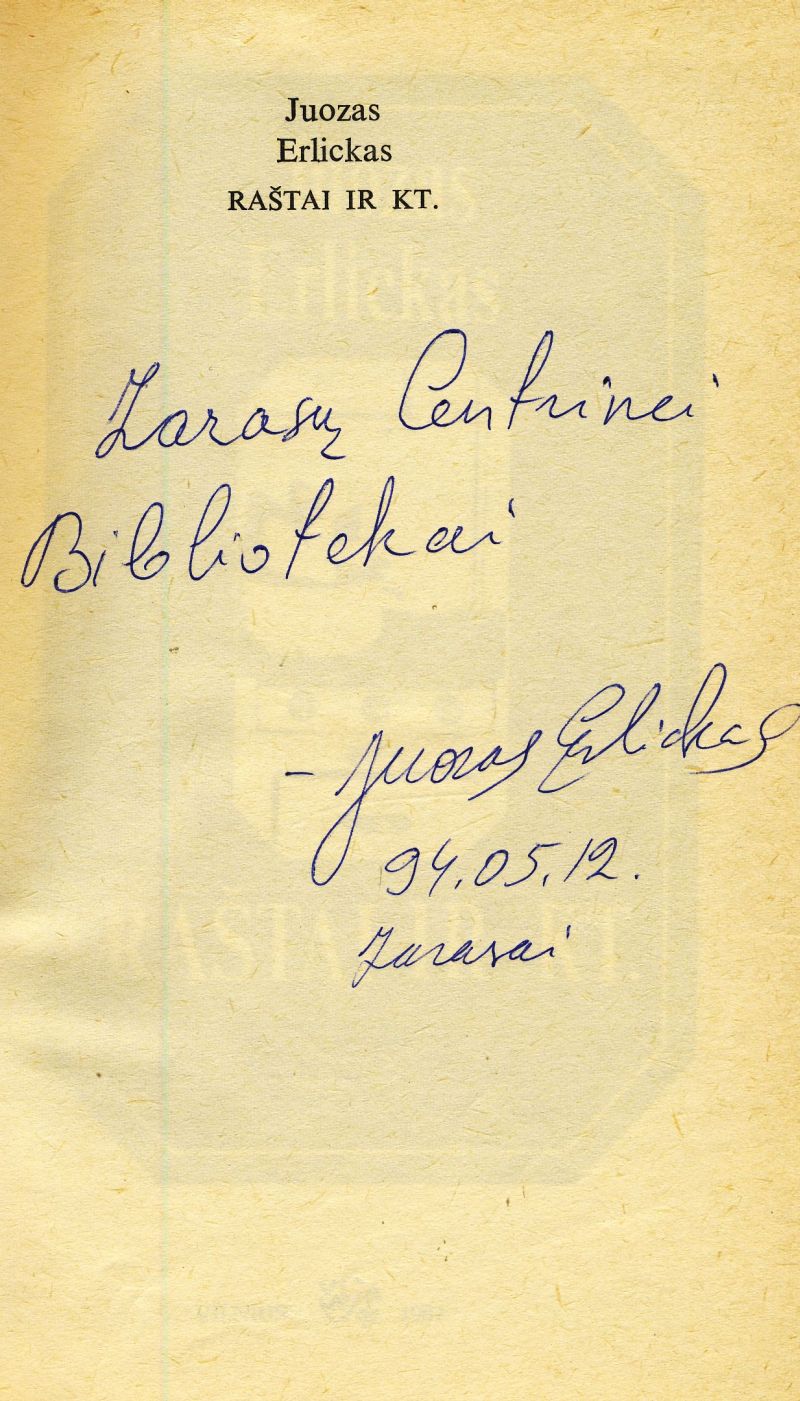 Juozas
Erlickas
RAŠTAI IR KT.
Zarasų Centrinei
Bibliotekai
– Juozas Erlickas
94.05.12.
Zarasai